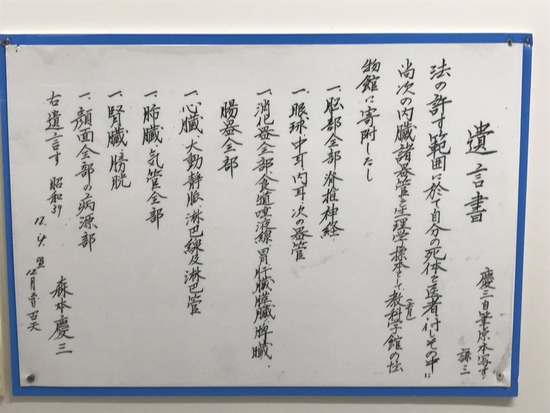 遺言書
慶三自筆原本写す
謙三
法の許す範囲に於て自分の死体を医者付しその中に
尚次の内臓諸器管を生理学標本として教科学館の
物館に寄附したし
一、脳部全部脊椎神経
一、眼球中耳内耳次の器管
一、消化器全部食道唾液線胃肝臓膵臓脾臓、
腸器全部
一、心臓、大動静脈淋巴線及淋巴管
一、肺臓、気管全部
一、腎臓、膀胱
一、顔面全部の病源部
右遺言す 昭和39
12.4.
12月 召天
森本慶三